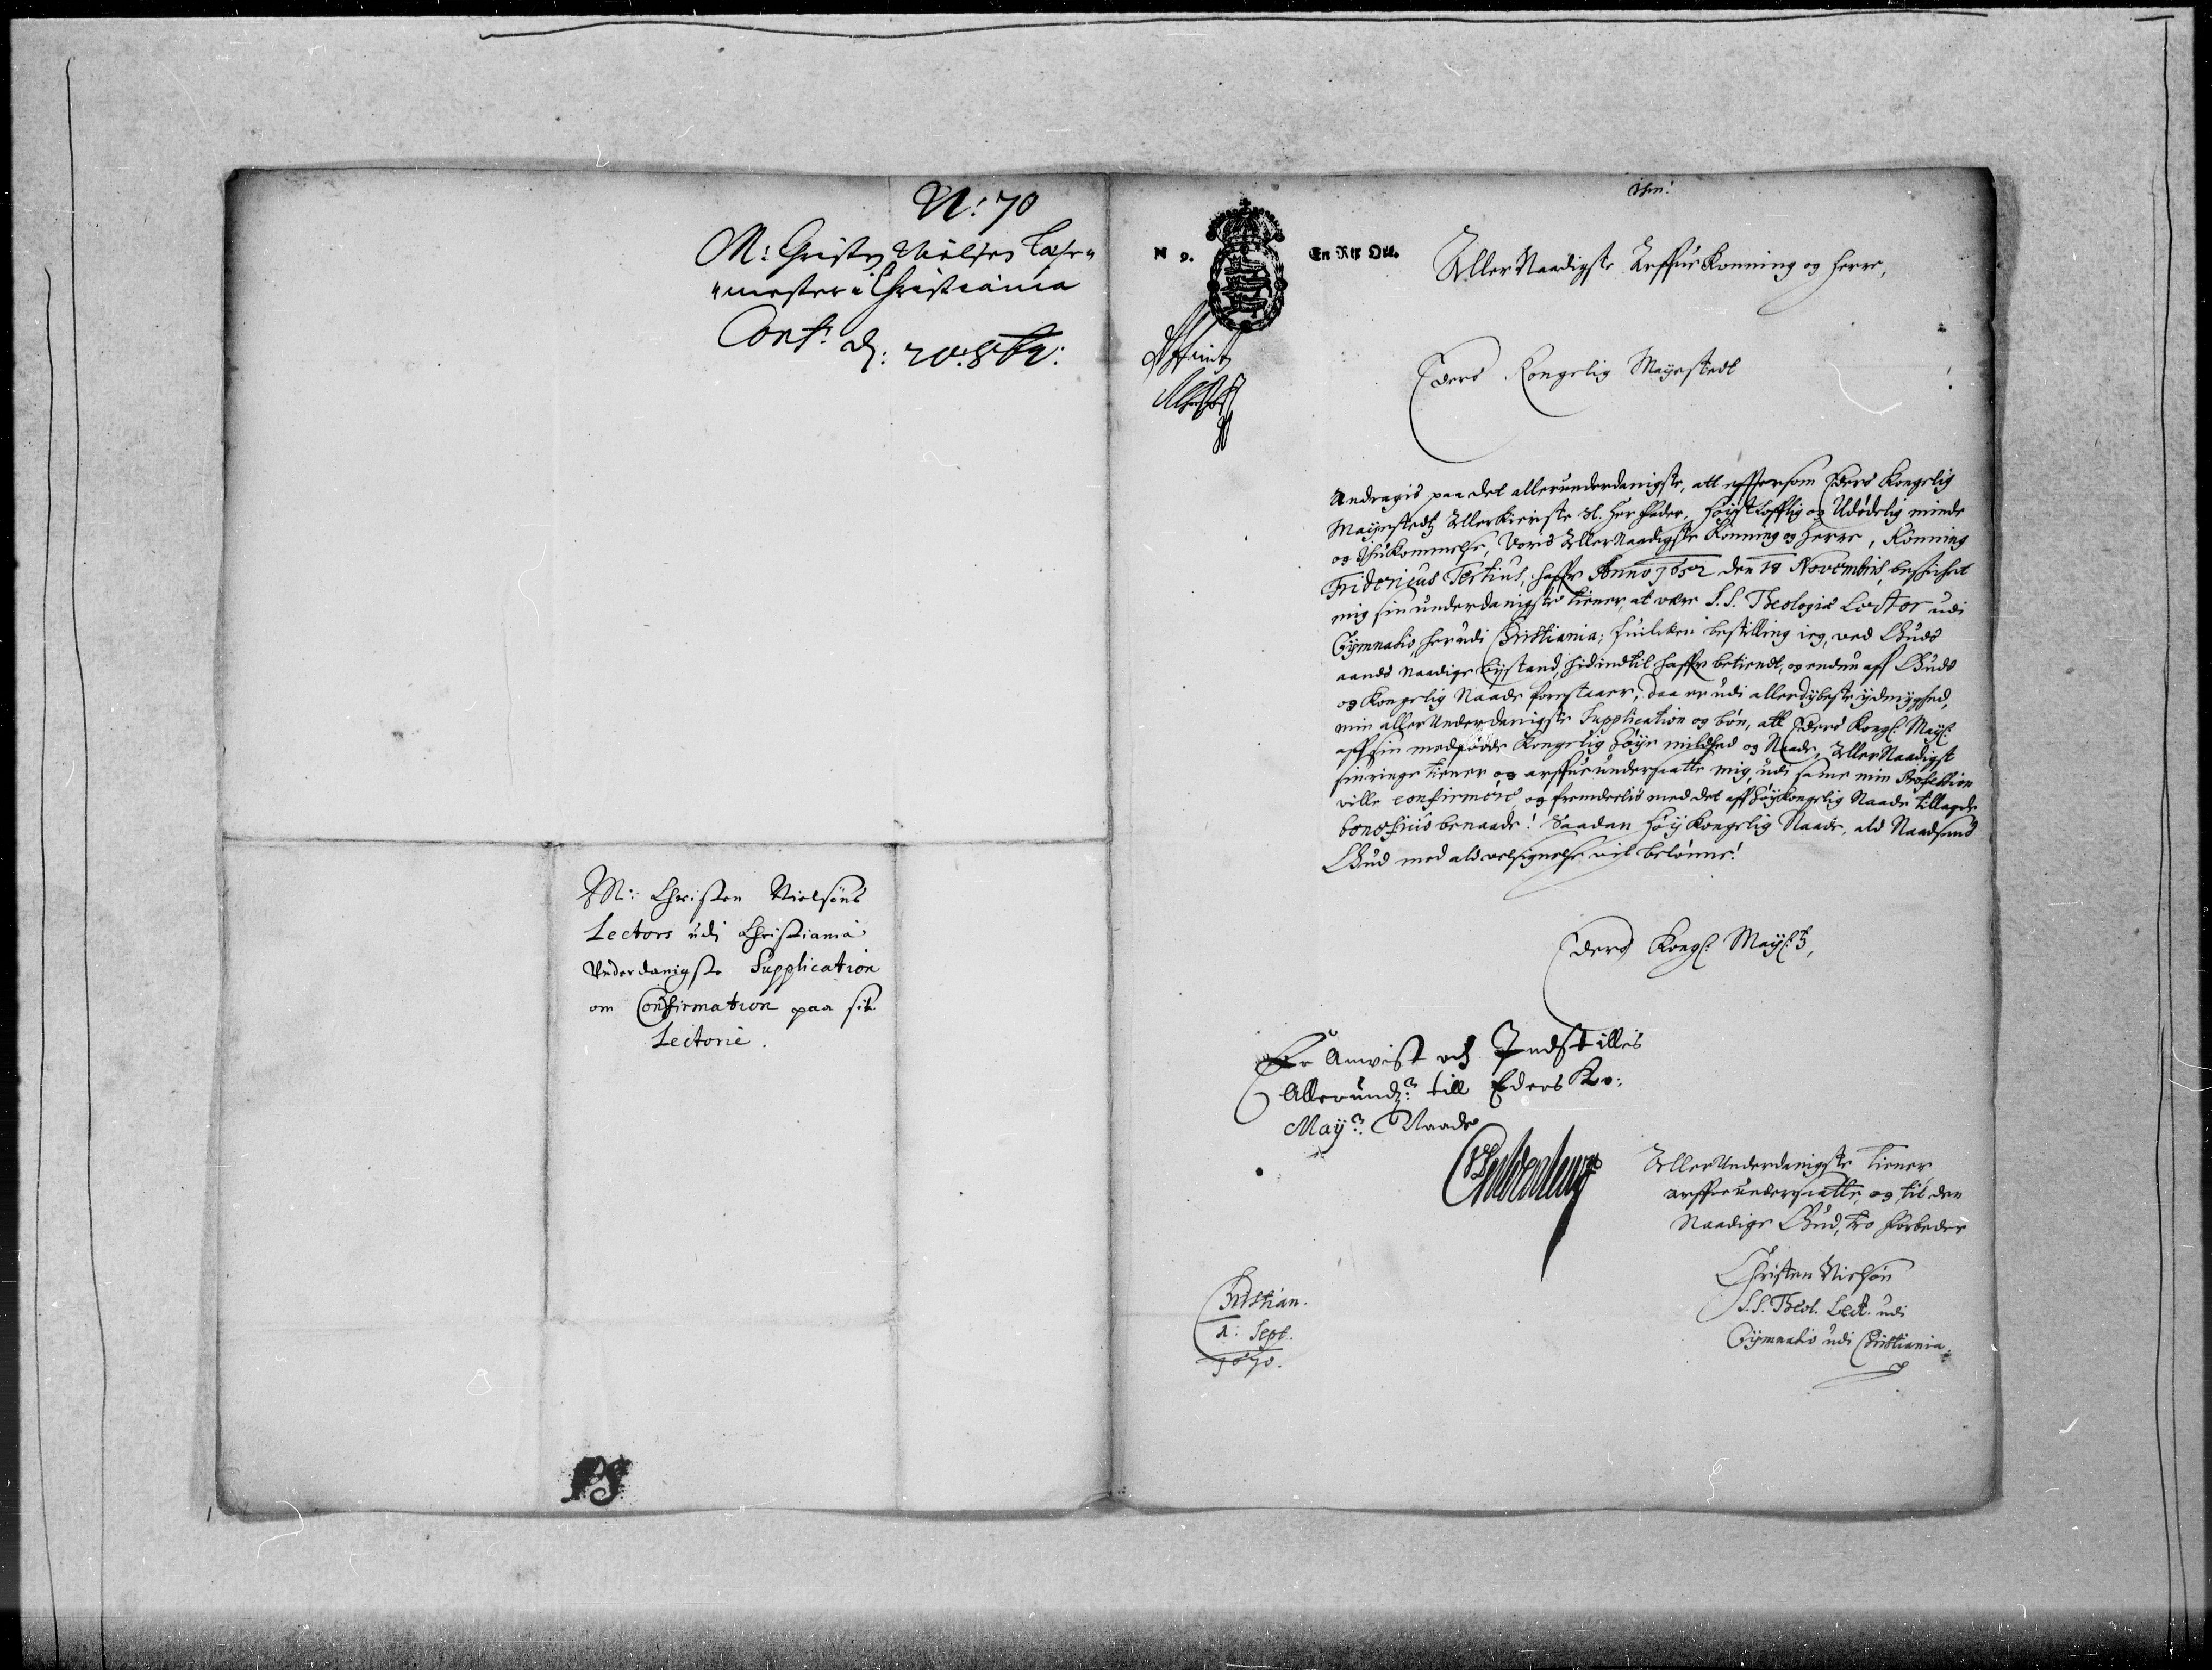 N: 70
M: Christen Nielsen Læse-
-mester i Christiania
Conf: d: 20. 8br:
M: Christen Nielsøns
Lectors udi Christiania
Underdanigste Supplication
om Confirmation paa sit
Lectorie.
PS
N 9. En Rix Ort.
AllerNaadigste Arffue Konning og Herre,
Eders Kongelig Mayestedt
Andragis paa det allerunderdanigste, att efftersom Eders Kongelig
Mayestedtz AllerKierste Sl. Her Fader, Høyst Lofflig og Udødelig minde
og Ihukommelse, Voris AllerNaadigste Konning og Herre, Konning
Fridericus Tertius, haffr Anno 1652 den 18 Novembris, beskicket
mig sin underdanigste tiener, at være S.S. Theologiæ Lector udi
Gymnasio, her udi Christiania; huilcken bestilling ieg, ved Guds
aands naadige bystand, hidindtil haffr betiendt, og endnu aff Guds
og Kongelig Naade forestaaer; Daa er udi allerdybeste ydmyghed,
min allerUnderdanigste Supplication og bøn, att Eders Kongl: Mayt:
aff sin medfødde Kongelig høye mildhed og Naade, AllerNaadigst
sin ringe tiener og arffue undersaatte mig, udi samme min Profession
ville confirmere, og fremdeelis med det aff Høy Kongelig Naade tillagde
beneficio benaade! Saadan Høy Kongelig Naade, ald Naadsens
Gud med ald velsignelse vil belønne!
Eders Kongl: Mayt:z,
Er Anvist och Indstillis
Allerund: till Eders Ko:
May: Naade
Allerunderdanigste tiener
arffue undersaatte, og til den
Naadige Gud, tro forbeder
Christen Nielsøn
S.S. Theol. Lect. udi
Gymnasio udi Christiania.
Christian.
1: Sept.
1670.